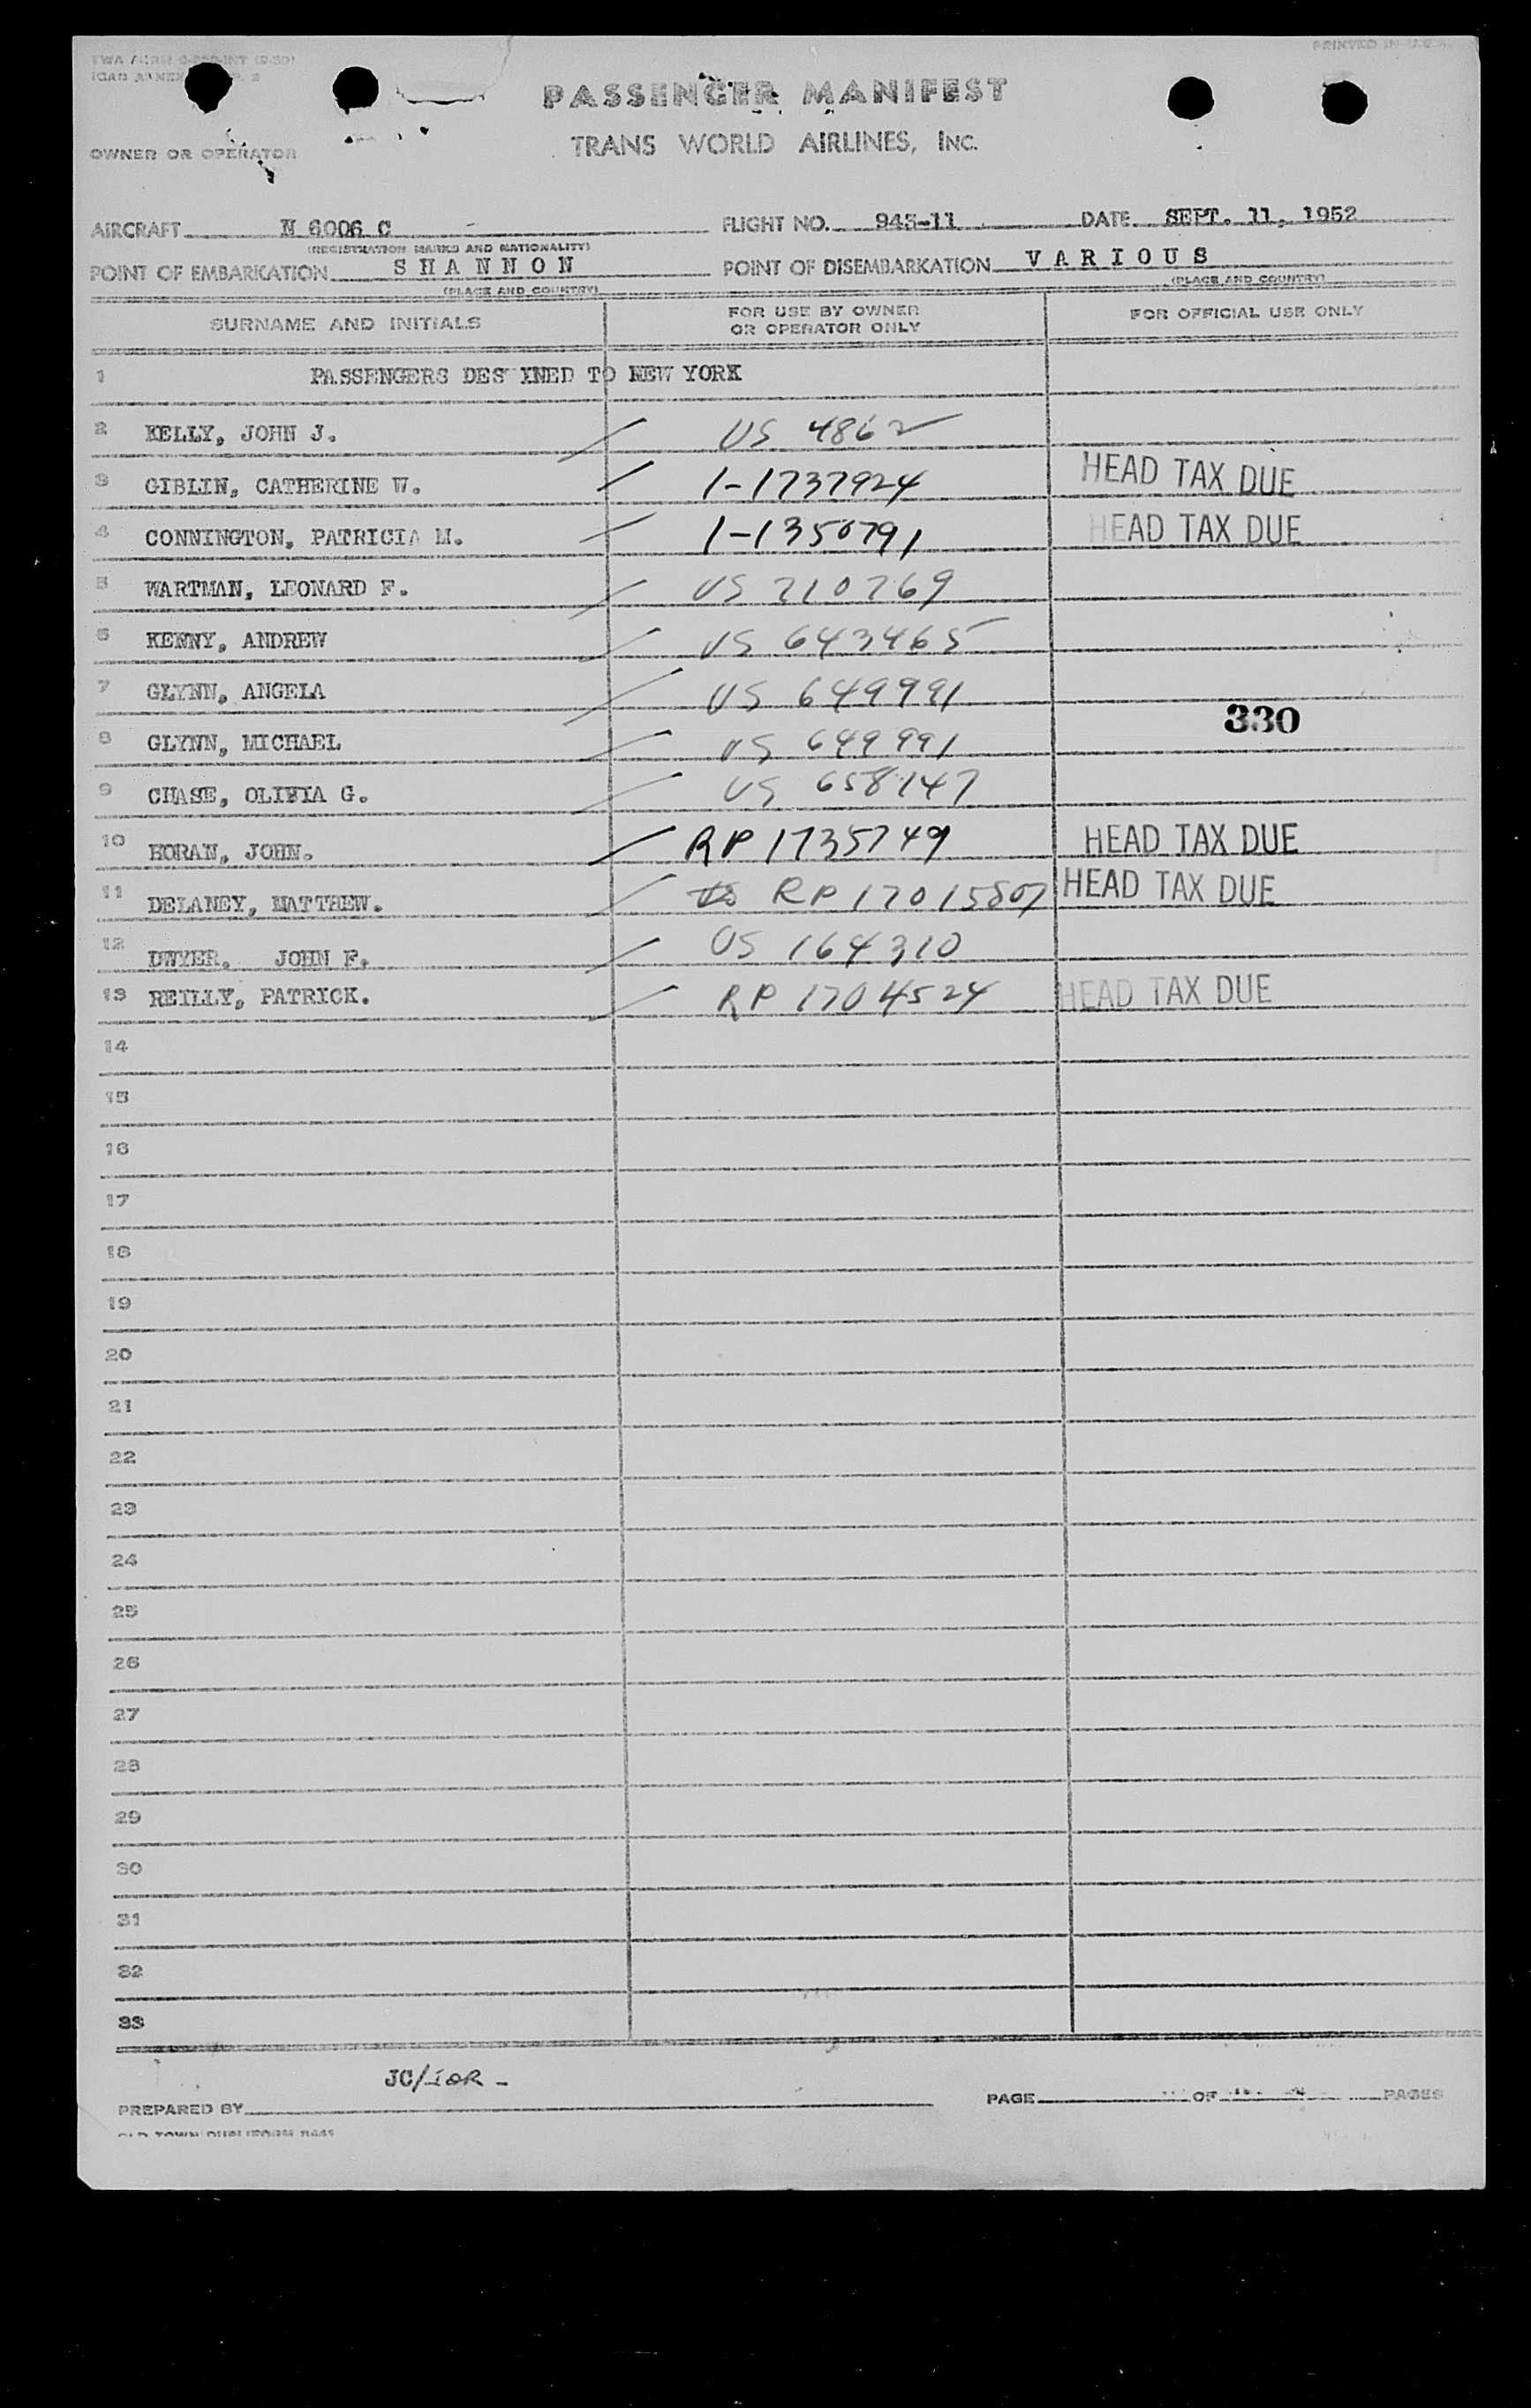 PRINTED IN U.S.A.
PASSENGER MANIFEST
TRANS WORLD AIRLINES, INC.
OWNER OR OPERATOR
AIRCRAFT N 6006 C FLIGHT NO. 943-11 DATE SEPT. 11, 1952
(REGISTRATION MARKS AND NATIONALITY)
POINT OF EMBARKATION S H A N N O N POINT OF DISEMBARKATION V A R I O U S
(PLACE AND COUNTRY) (PLACE AND COUNTRY)
SURNAME AND INITIALS FOR USE BY OWNER OR OPERATOR ONLY FOR OFFICIAL USE ONLY
1 PASSENGERS DES INED TO NEW YORK
2 KELLY, JOHN J. US 4862
3 GIBLIN, CATHERINE W. 1-1737924 HEAD TAX DUE
4 CONNINGTON, PATRICIA M. 1-1350791 HEAD TAX DUE
5 WARTMAN, LEONARD F. US 210269
6 KENNY, ANDREW US 643465
7 GLYNN, ANGELA US 649991
330
8 GLYNN, MICHAEL US 649991
9 CHASE, OLIVIA G. US 658147
10 HORAN, JOHN. RP 1735749 HEAD TAX DUE
11 DELANEY, MATTHEW. RP 17015807 HEAD TAX DUE
12 DWYER, JOHN F. US 164310
13 REILLY, PATRICK. RP 1704524 HEAD TAX DUE
14
15
16
17
18
19
20
21
22
23
24
25
26
27
28
29
30
31
32
33
JC/IOR -
PREPARED BY PAGE OF PAGES